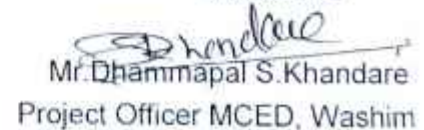 Mr.Dhammapal S.Khandare
Project Officer MCED, Washim